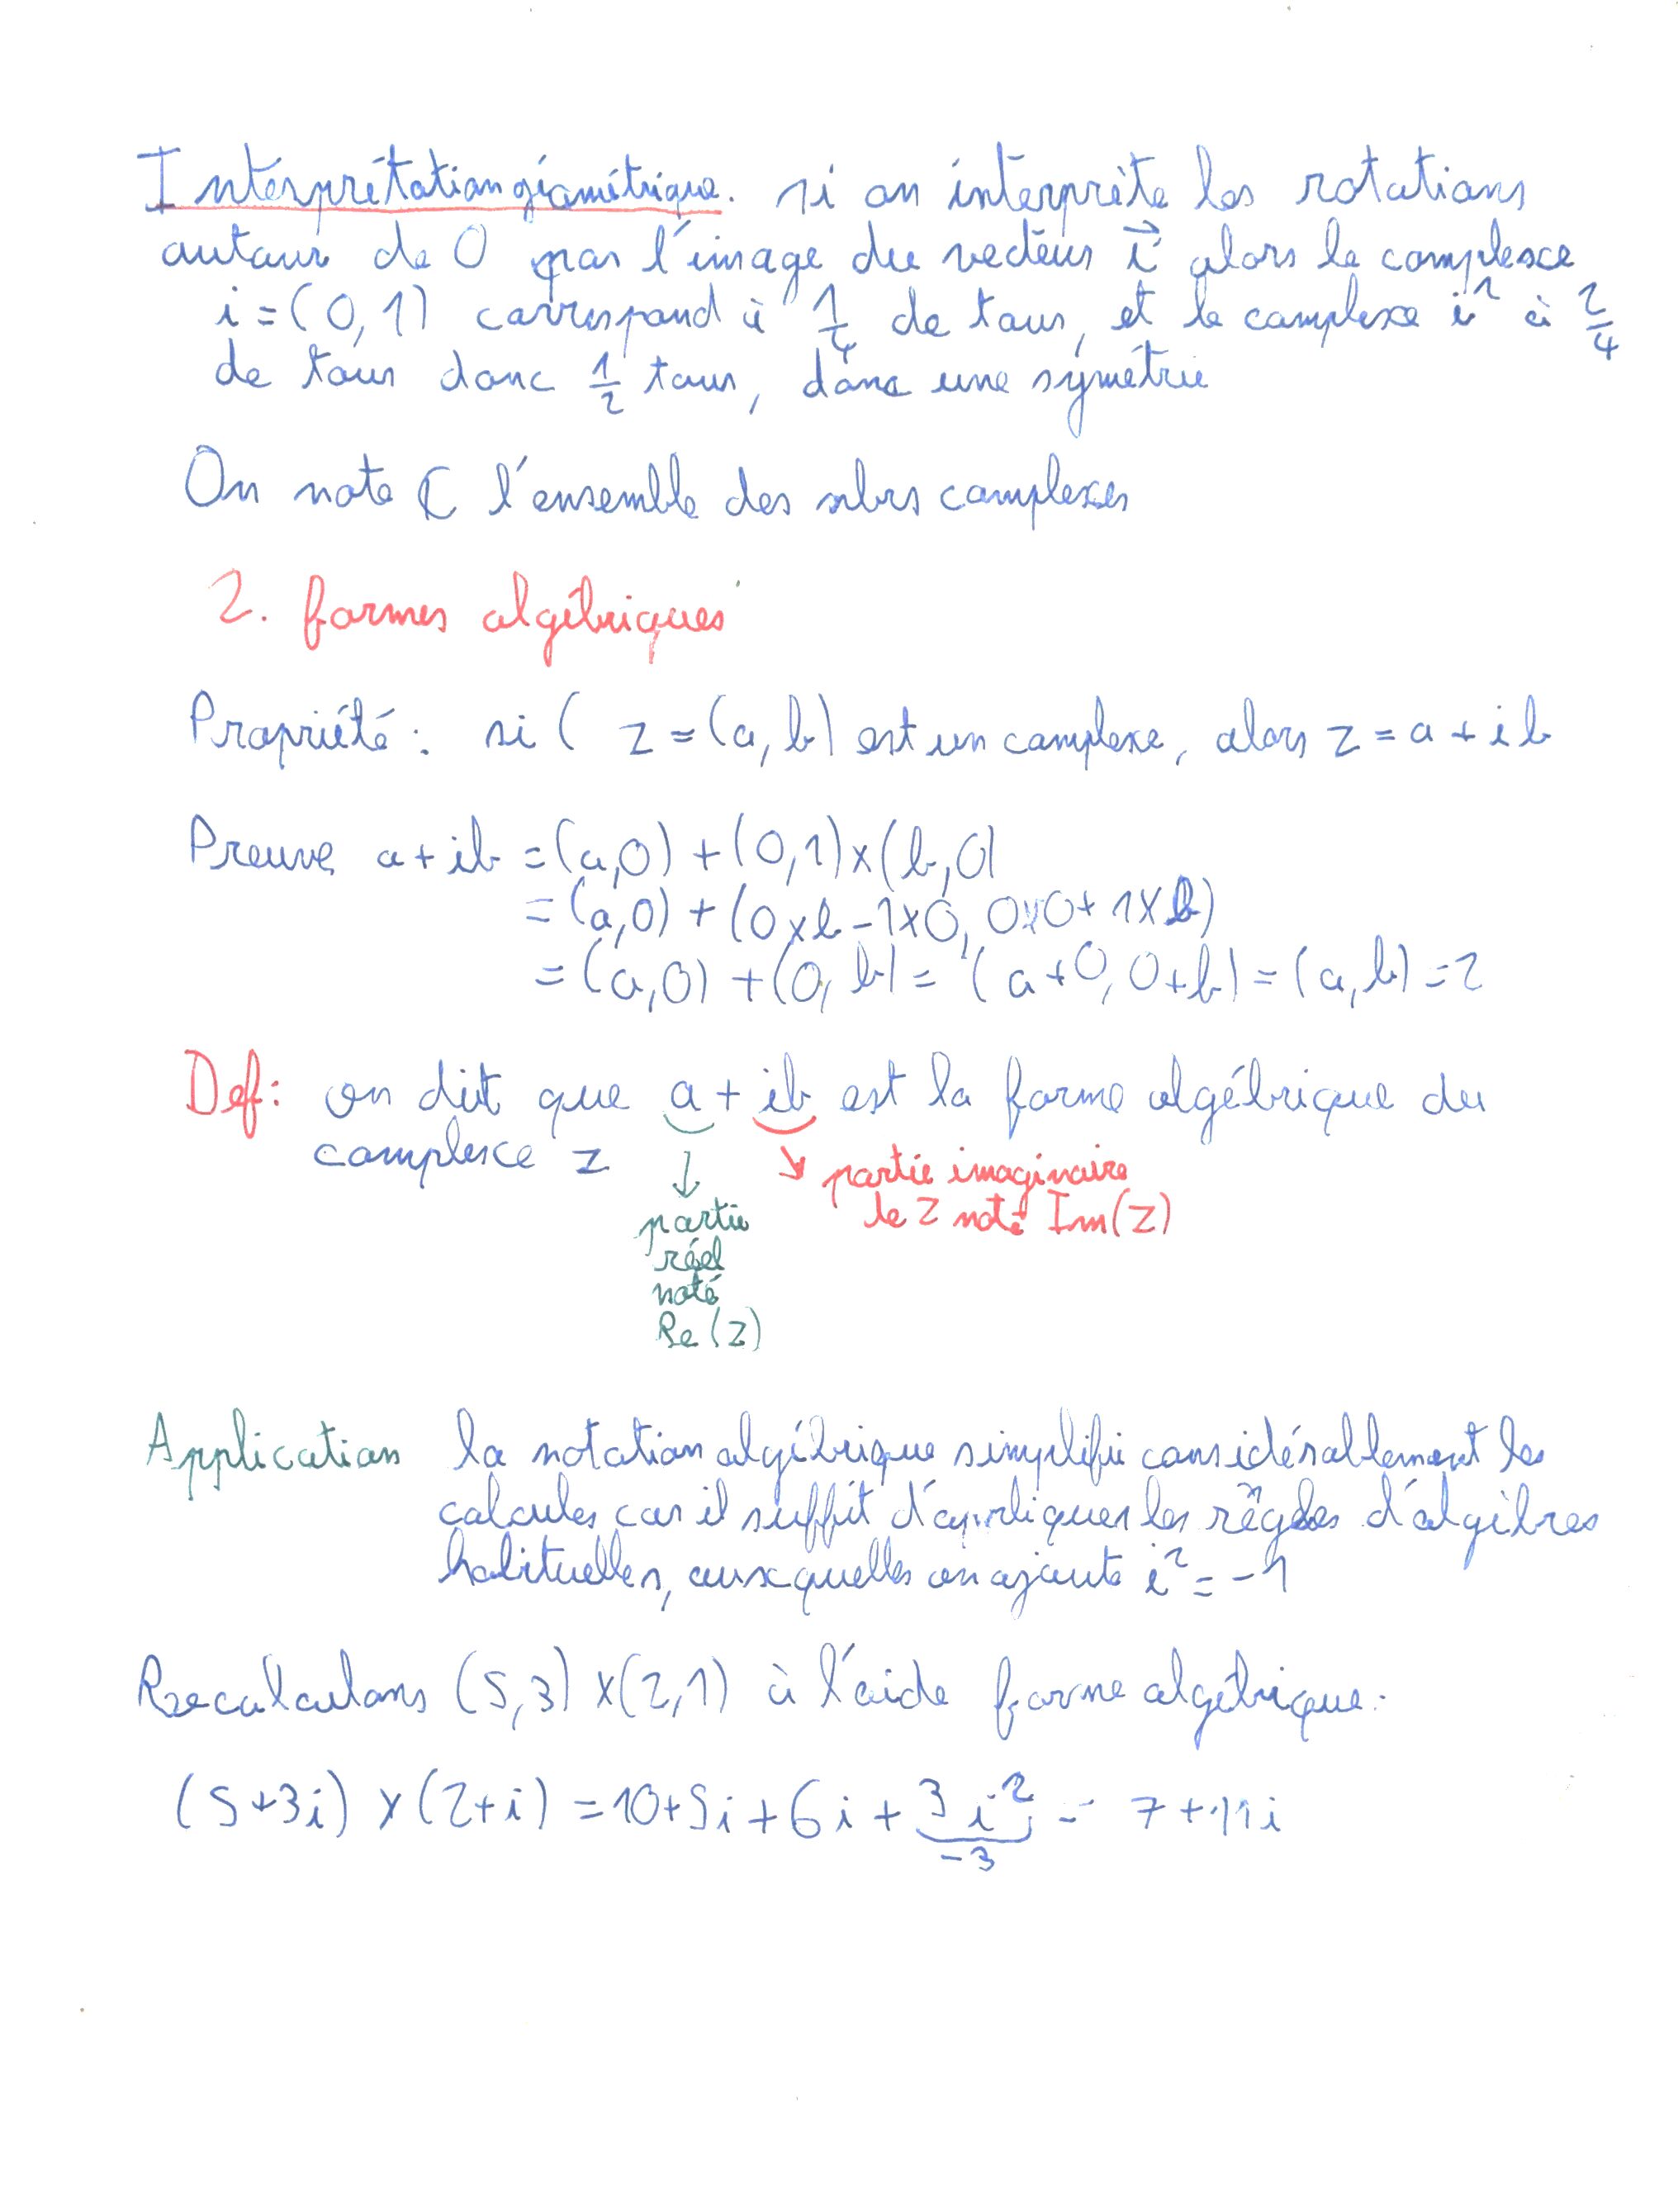 Interprétation géométrique. si on interprète les rotations
autour de O par l'image du vecteur i⃗ alors le complexe
i = (0,1) correspond à 1/4 de tour, et le complexe i² à 2/4
de tour donc 1/2 tour, donc une symétrie
On note ℂ l'ensemble des nbrs complexes
2. formes algébriques
Propriété : si ( z = (a, b) est un complexe, alors z = a + ib
Preuve a + ib = (a,0) + (0,1) × (b,0)
= (a,0) + (0×b - 1×0, 0×0 + 1×b)
= (a,0) + (0, b) = (a+0, 0+b) = (a, b) = z
Def : on dit que a + ib est la forme algébrique du
complexe z
partie imaginaire
de z noté Im(z)
partie
réel
noté
Re(z)
Application la notation algébrique simplifie considérablement les
calcules car il suffit d'appliquer les règles d'algèbres
habituelles, auxquelles on ajoute i² = -1
Recalculons (5,3) × (2,1) à l'aide forme algébrique.
(5+3i) × (2+i) = 10 + 5i + 6i + 3i² = 7 + 11i
-3